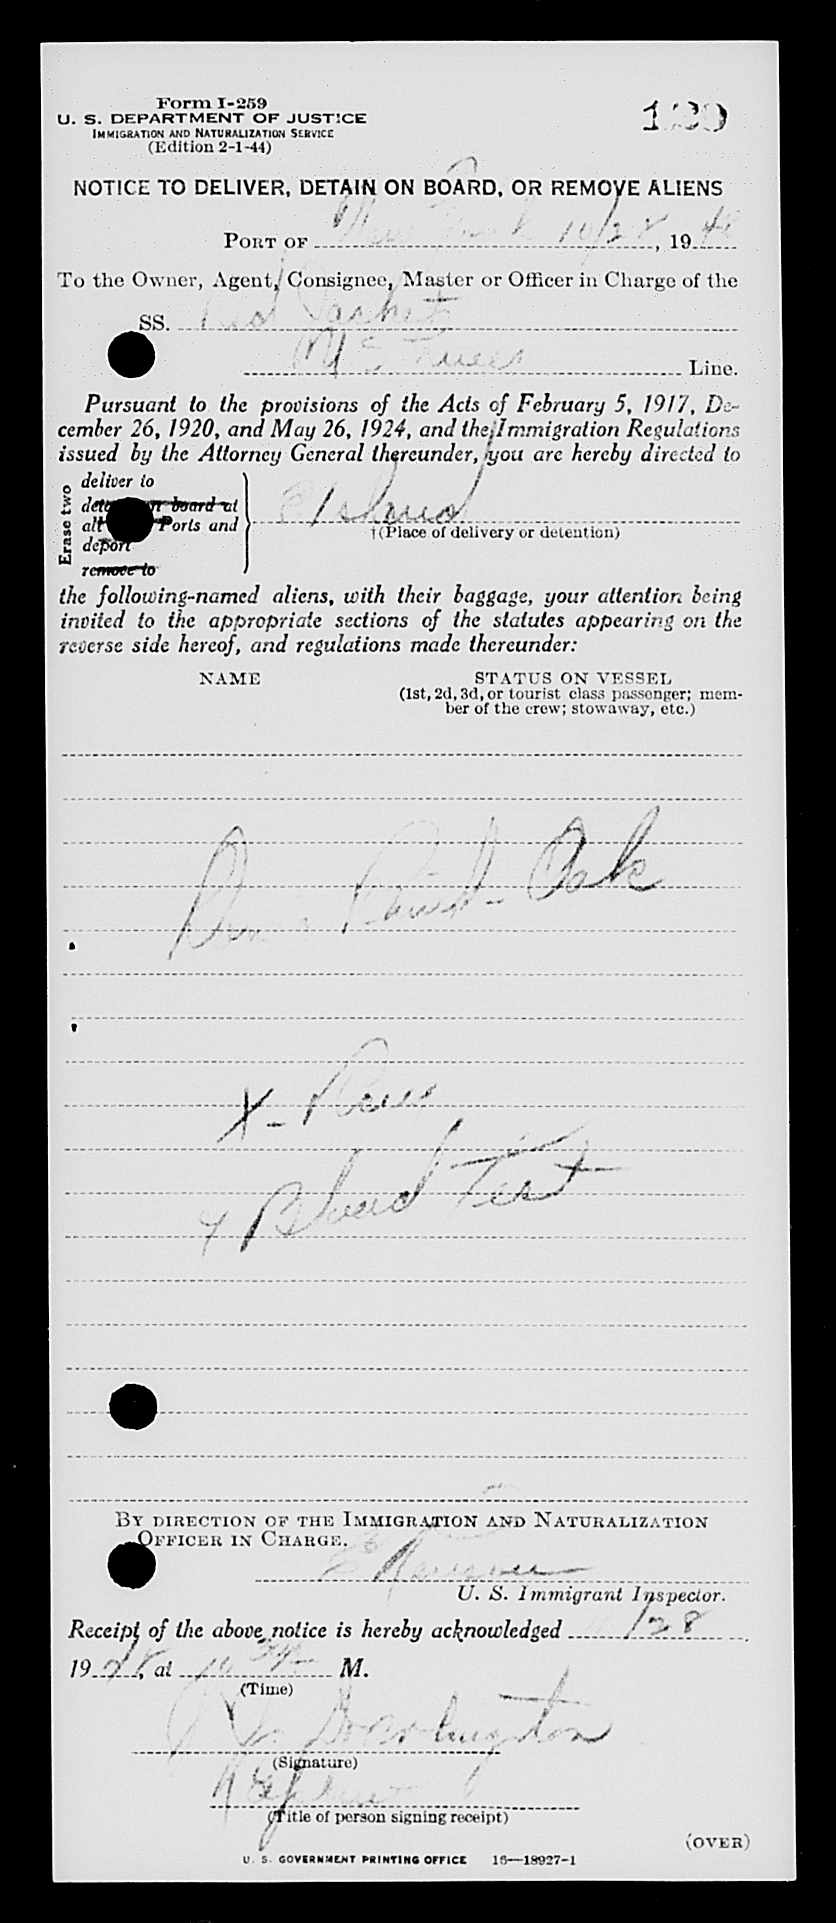 Form I-259
U. S. DEPARTMENT OF JUSTICE
IMMIGRATION AND NATURALIZATION SERVICE
(Edition 2-1-44)
129
NOTICE TO DELIVER, DETAIN ON BOARD, OR REMOVE ALIENS
PORT OF New York 10/28, 1948
To the Owner, Agent, Consignee, Master or Officer in Charge of the
SS. Red Jacket
Line.
Pursuant to the provisions of the Acts of February 5, 1917, De-
cember 26, 1920, and May 26, 1924, and the Immigration Regulations
issued by the Attorney General thereunder, you are hereby directed to
Erase two
deliver to
on board at
all Ports and
deport
remove to
E Island
†(Place of delivery or detention)
the following-named aliens, with their baggage, your attention being
invited to the appropriate sections of the statutes appearing on the
reverse side hereof, and regulations made thereunder:
NAME STATUS ON VESSEL
(1st, 2d, 3d, or tourist class passenger; mem-
ber of the crew; stowaway, etc.)
Oak
X-Rays
& Blood Test
BY DIRECTION OF THE IMMIGRATION AND NATURALIZATION
OFFICER IN CHARGE.
U. S. Immigrant Inspector.
Receipt of the above notice is hereby acknowledged /28
19, at M.
(Time)
(Signature)
(Title of person signing receipt)
(OVER)
U. S. GOVERNMENT PRINTING OFFICE 16—18927-1